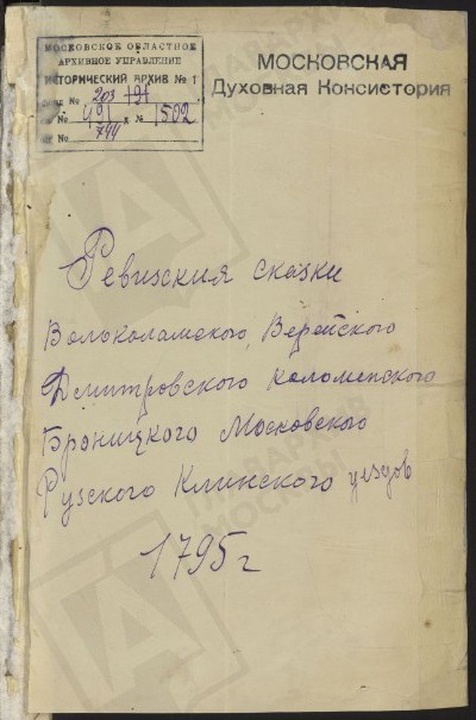 МОСКОВСКОЕ ОБЛАСТНОЕ
АРХИВНОЕ УПРАВЛЕНИЕ
ИСТОРИЧЕСКИЙ АРХИВ № 1
№ 203 191
№ 491 д № 1502
№ 744
МОСКОВСКАЯ
Духовная Консистория
Ревизския сказки
Волоколамского, Верейского
Дмитровского Коломенского
Броницкого Московского
Рузского Клинского уездов
1795 г
ГЛАВАРХИВ
МОСКВЫ
ГЛАВАРХИВ
МОСКВЫ